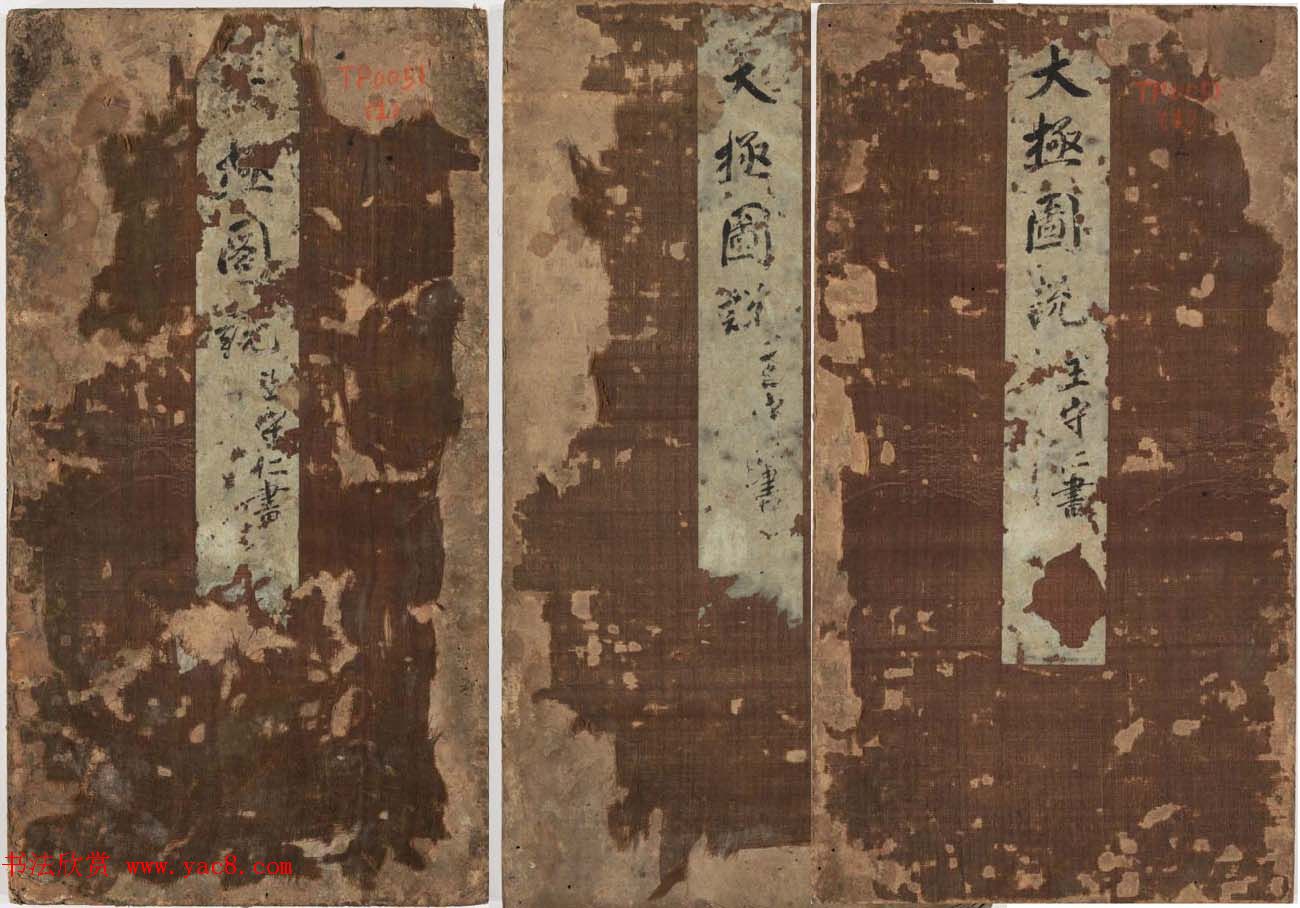 TP0051
(1)
極圖說
守仁書
大極圖說
大極圖説
王守仁書
书法欣赏 www.yac8.com